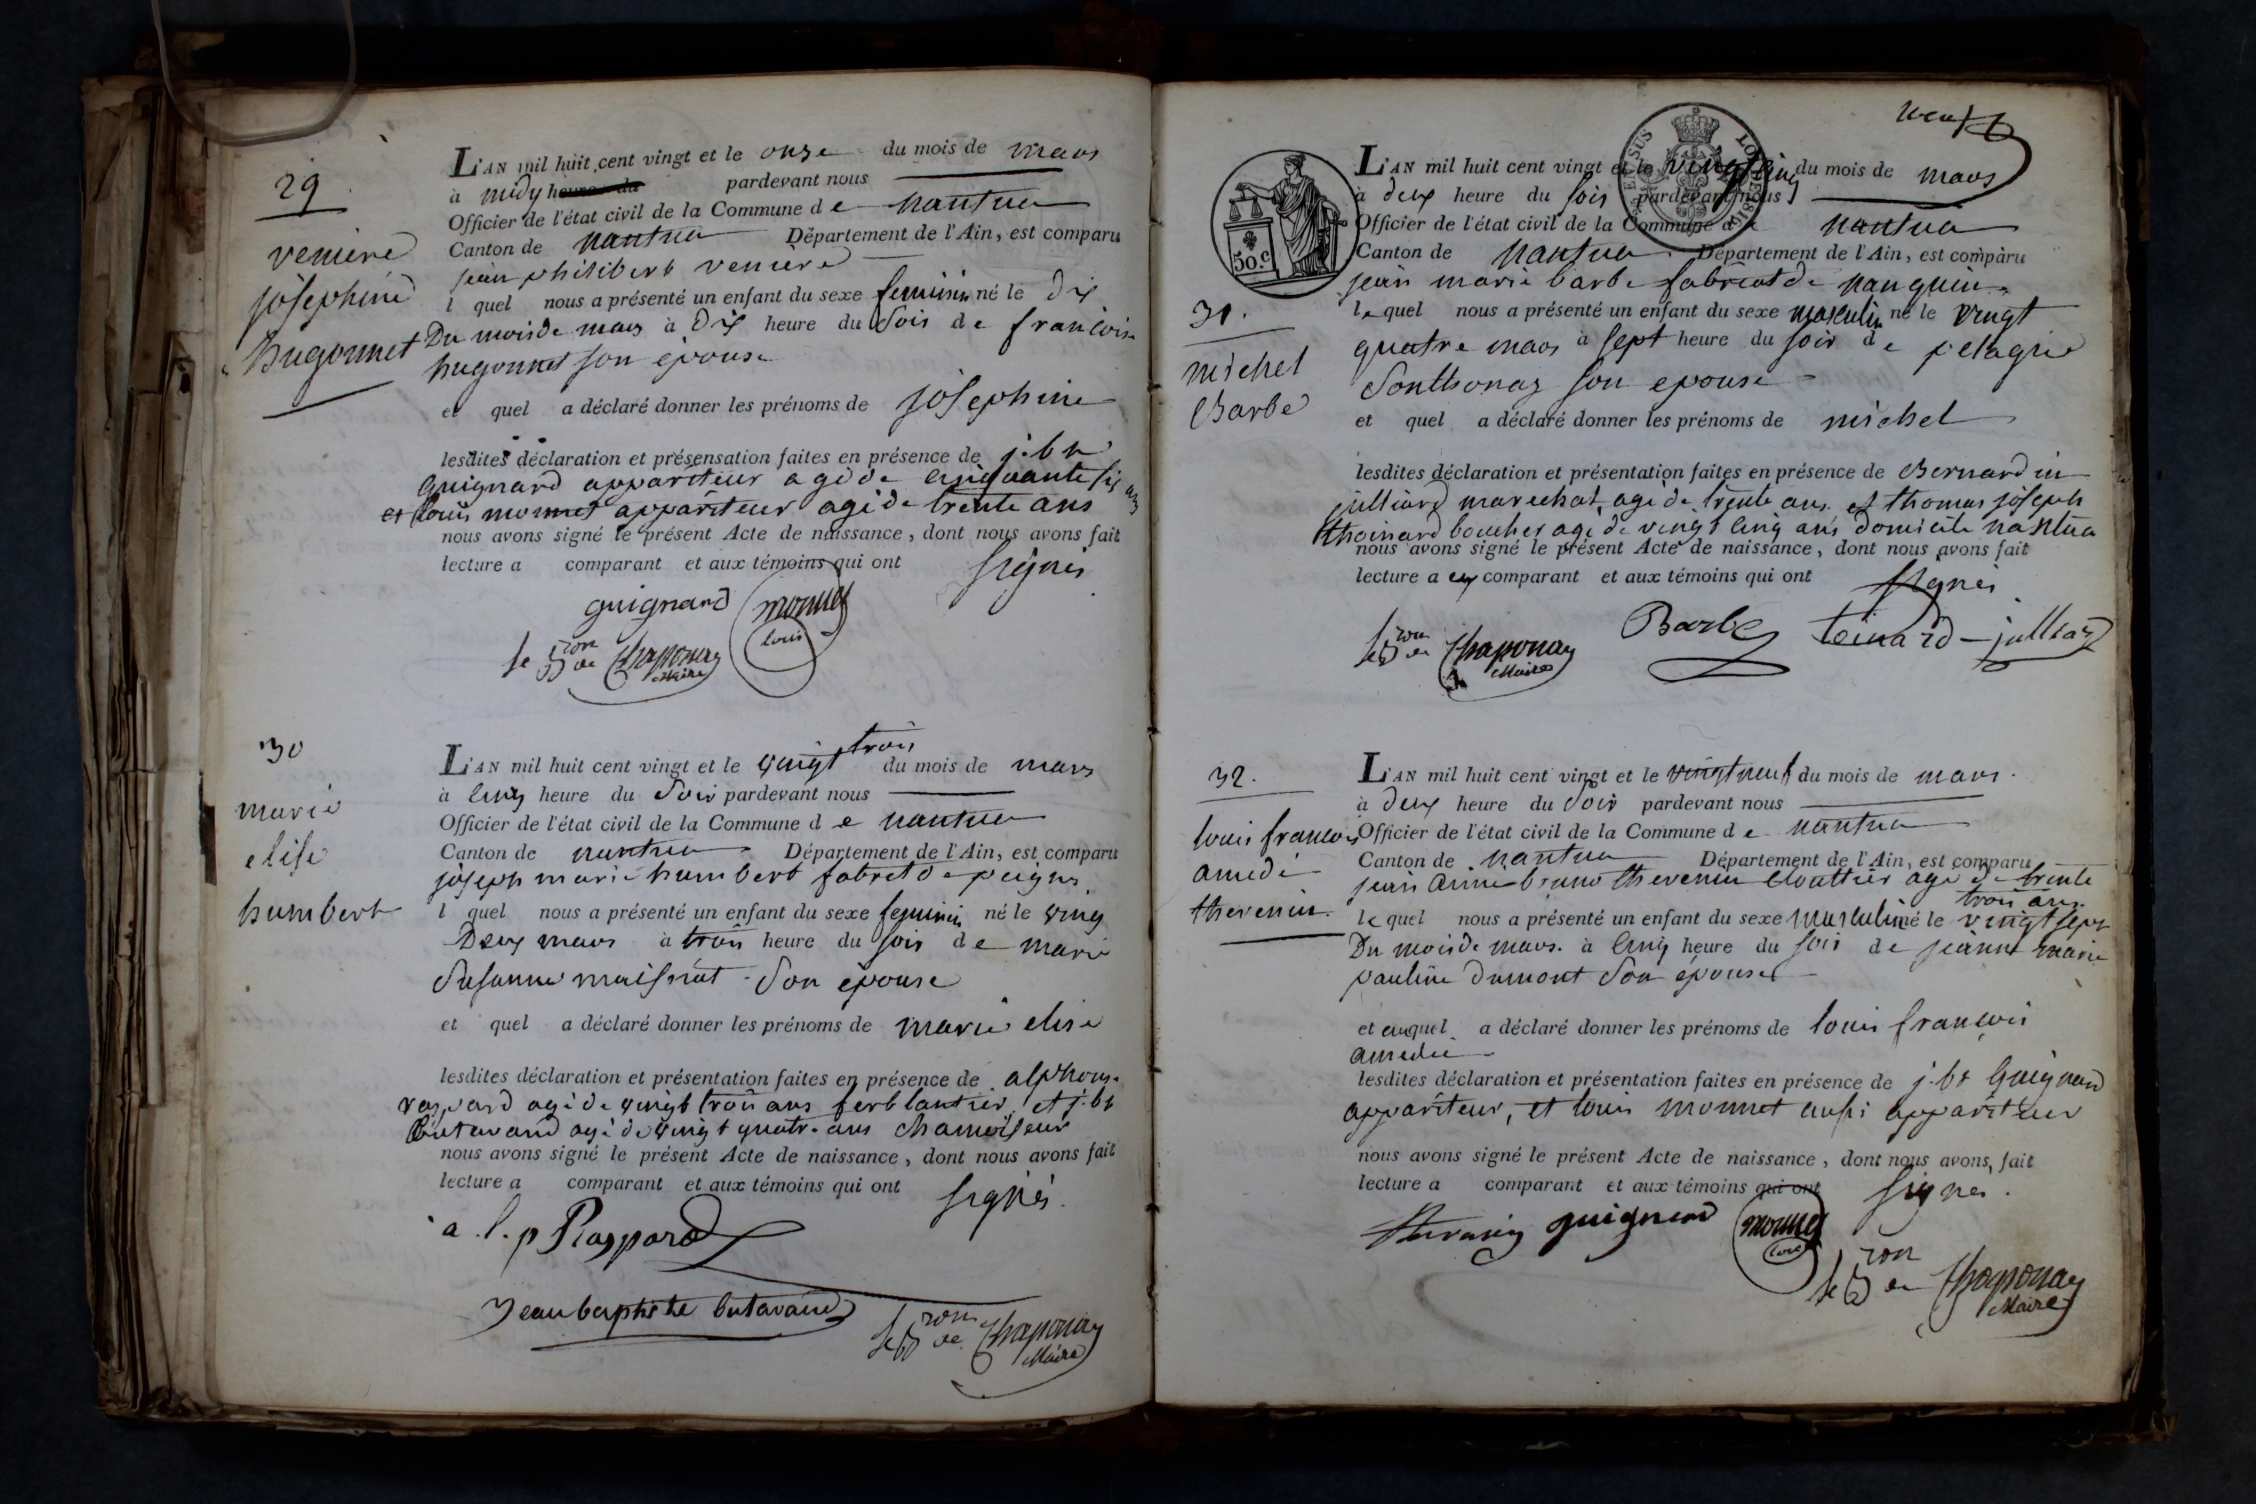 29
veniere
josephine
hugonnet
L'AN mil huit cent vingt et le onze du mois de mars
à midy heure du pardevant nous
Officier de l'état civil de la Commune de nantua
Canton de nantua Département de l'Ain, est comparu
jean philibert veniere
l quel nous a présenté un enfant du sexe feminin né le dix
Du mois de mars à Dix heure du Soir de francoise
hugonnet son épouse
et quel a déclaré donner les prénoms de josephine
lesdites déclaration et présensation faites en présence de j. bte
Guignard appariteur agé de cinquante six ans
et louis monnet appariteur agé de trente ans
nous avons signé le présent Acte de naissance, dont nous avons fait
lecture a comparant et aux témoins qui ont signés
guignard monnet
louis
le Bron de Chaponay
Maire
30
marie
elise
humbert
L'AN mil huit cent vingt et le vingt trois du mois de mars
à cinq heure du Soir pardevant nous
Officier de l'état civil de la Commune de nantua
Canton de nantua Département de l'Ain, est comparu
joseph marie humbert fabrct de peignes
l quel nous a présenté un enfant du sexe feminin né le vingt
Deux mars à trois heure du soir de marie
Susanne maissiat Son épouse
et quel a déclaré donner les prénoms de marie elise
lesdites déclaration et présentation faites en présence de alphonse
raspard agé de vingt trois ans ferblantier, et j. bt
butavand agé de vingt quatre ans chamoiseur
nous avons signé le présent Acte de naissance, dont nous avons fait
lecture a comparant et aux témoins qui ont signés
a. l. p Raspard
Jean baptiste butavand
le Bron de Chaponay
Maire
neuf
50.c
31.
michel
Barbe
L'AN mil huit cent vingt et le vingt cinq du mois de mars
à deux heure du soir pardevant nous
Officier de l'état civil de la Commune de nantua
Canton de nantua Département de l'Ain, est comparu
jean marie barbe fabricat de nanquin
le quel nous a présenté un enfant du sexe masculin né le vingt
quatre mars à sept heure du soir de pelagie
Sonthonax son epouse
et quel a déclaré donner les prénoms de michel
lesdites déclaration et présentation faites en présence de Bernardin
julliard marechal, agé de trente ans et thomas joseph
thoinard boucher agé de vingt cinq ans domicile nantua
nous avons signé le présent Acte de naissance, dont nous avons fait
lecture a eux comparant et aux témoins qui ont signés
Barbe toinard julliard
le Bron de Chaponay
Maire
32.
louis francois
amedé
thevenin.
L'AN mil huit cent vingt et le vingt neuf du mois de mars.
à deux heure du Soir pardevant nous
Officier de l'état civil de la Commune de nantua
Canton de nantua Département de l'Ain, est comparu
jean aimé bruno thevenin cloutier agé de trente
trois ans.
le quel nous a présenté un enfant du sexe masculin né le vingt sept
Du mois de mars. à cinq heure du soir de jeanne marie
pauline dumont Son épouse
et auquel a déclaré donner les prénoms de louis françois
amedée
lesdites déclaration et présentation faites en présence de j. bt Guignard
appariteur, et louis monnet aussi appariteur
nous avons signé le présent Acte de naissance, dont nous avons fait
lecture a comparant et aux témoins qui ont signés.
thevenin guignard monnet
louis
le Bron de Chaponay
Maire